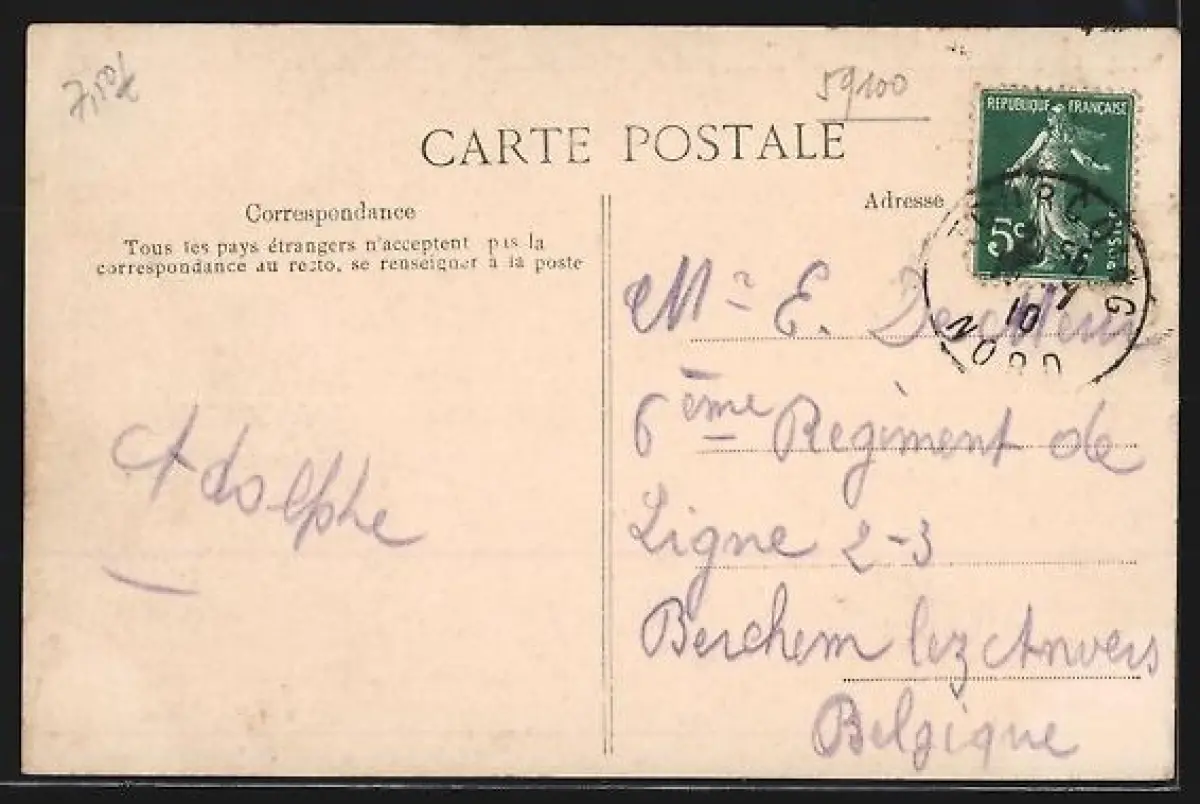 7,50€
59100
CARTE POSTALE
REPUBLIQUE FRANÇAISE
5c
POSTES
TOURCOING
10
NORD
Correspondance
Tous les pays étrangers n'acceptent pas la
correspondance au recto, se renseigner à la poste
Adolphe
Adresse
Mr E.
6ème Régiment de
Ligne 2-3
Berchem lez Anvers
Belgique